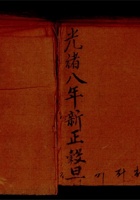 光緒八年新正穀旦